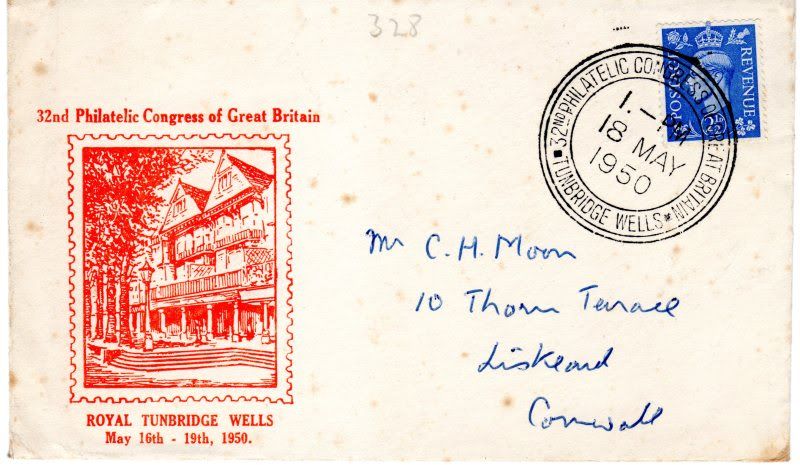 328
32nd Philatelic Congress of Great Britain
ROYAL TUNBRIDGE WELLS
May 16th - 19th, 1950.
32ND PHILATELIC CONGRESS OF GREAT BRITAIN
TUNBRIDGE WELLS
18 MAY
1950
POSTAGE
REVENUE
2½D
Mr C. H. Moon
10 Thorn Terrace
Liskeard
Cornwall